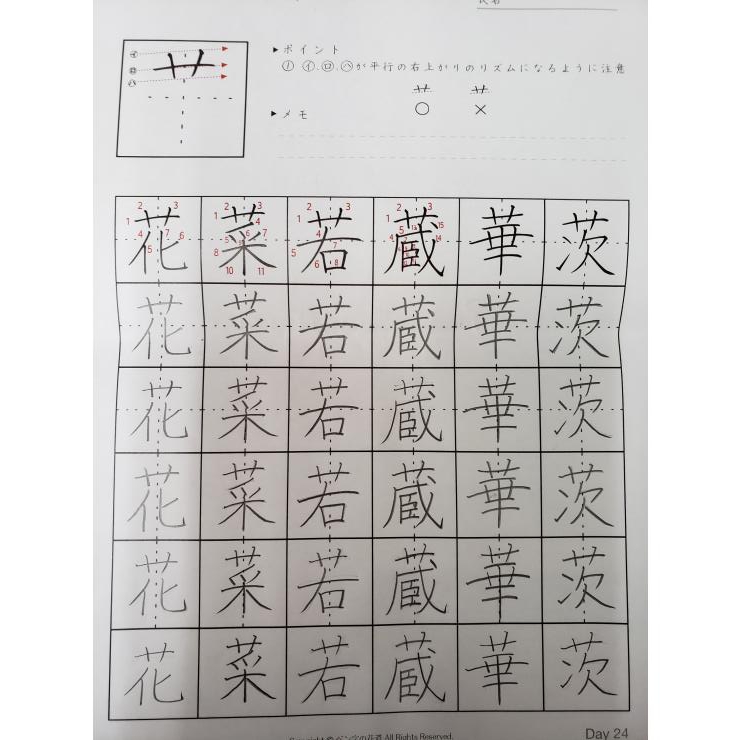 氏名
▶ポイント
㋑ ㋺ ㋩
㋑ ㋑.㋺.㋩が平行の右上がりのリズムになるように注意
○ ×
▶メモ
花 菜 若 蔵 華 茨
花 菜 若 蔵 華 茨
花 菜 若 蔵 華 茨
花 菜 若 蔵 華 茨
花 菜 若 蔵 華 茨
花 菜 若 蔵 華 茨
Copyright © ペン字の花道 All Rights Reserved.
Day 24